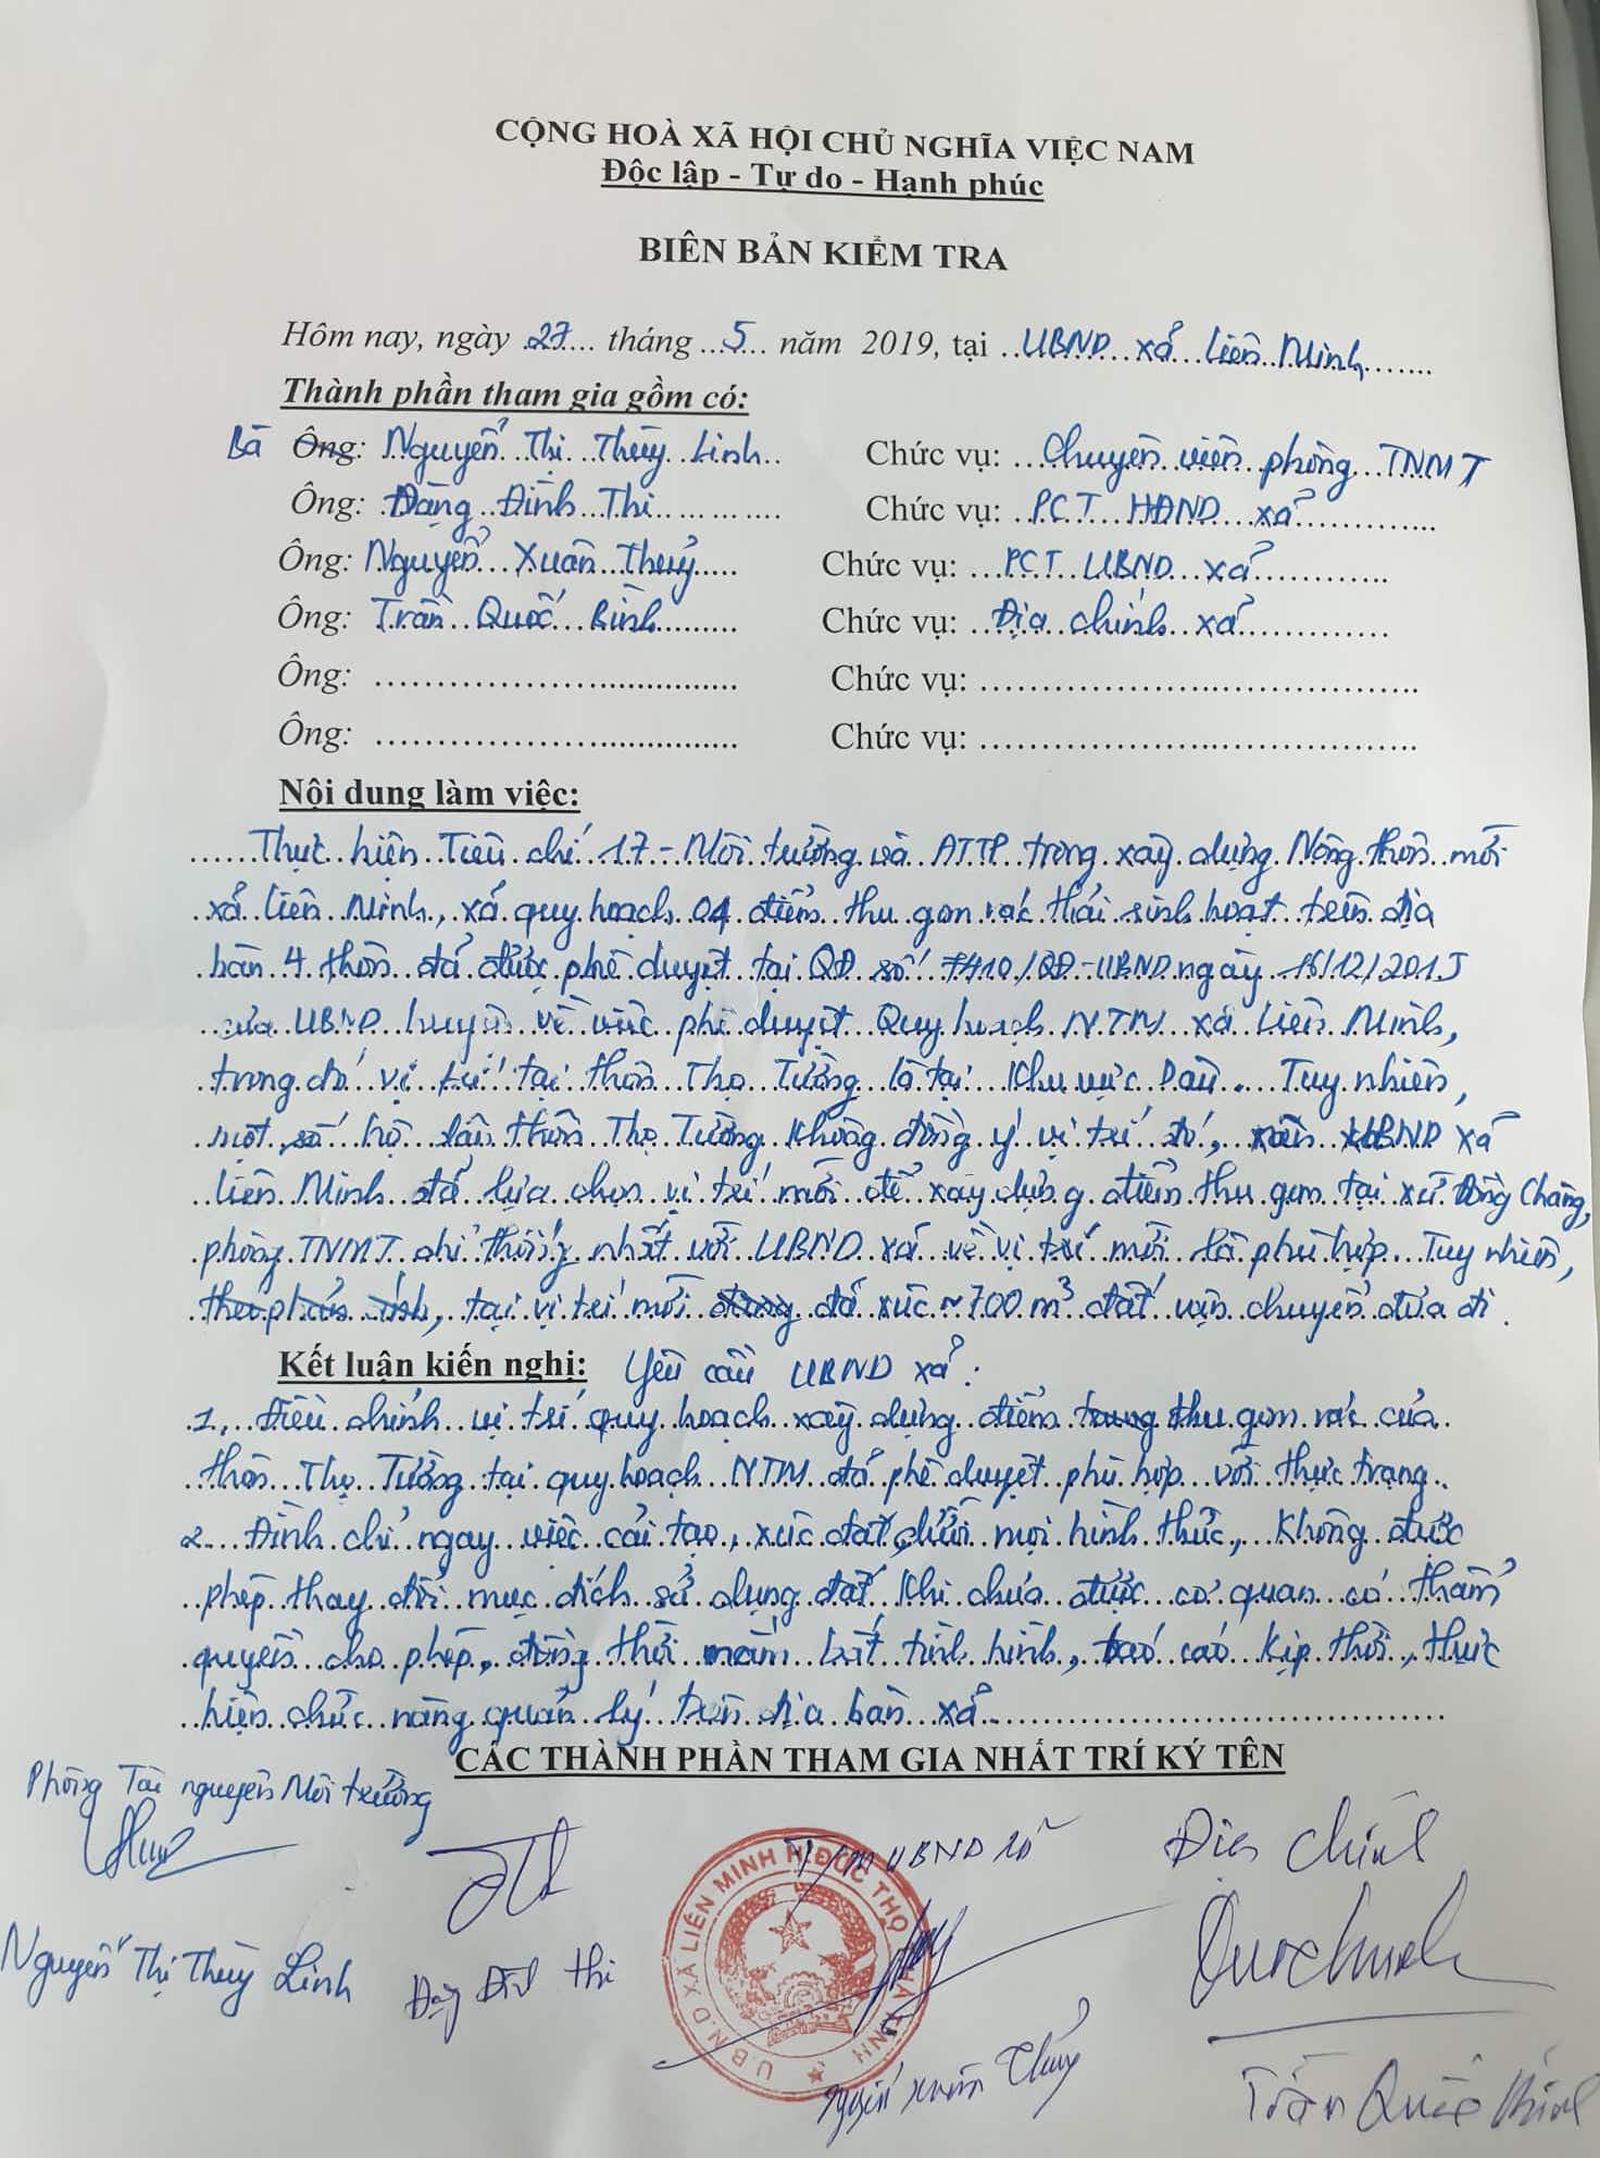 CỘNG HOÀ XÃ HỘI CHỦ NGHĨA VIỆC NAM
Độc lập - Tự do - Hạnh phúc
BIÊN BẢN KIỂM TRA
Hôm nay, ngày 27 tháng 5 năm 2019, tại UBND xã Liên Minh
Thành phần tham gia gồm có:
Bà Ông: Nguyễn Thị Thùy Linh Chức vụ: Chuyên viên phòng TNMT
Ông: Đặng Đình Thi Chức vụ: PCT HĐND xã
Ông: Nguyễn Xuân Thuỷ Chức vụ: PCT UBND xã
Ông: Trần Quốc Bình Chức vụ: Địa chính xã
Ông: Chức vụ:
Ông: Chức vụ:
Nội dung làm việc:
Thực hiện Tiêu chí 17 - Môi trường và ATTP trong xây dựng Nông thôn mới
xã Liên Minh, xã quy hoạch 04 điểm thu gom rác thải sinh hoạt trên địa
bàn 4 thôn đã được phê duyệt tại QĐ số 7410/QĐ-UBND ngày 16/12/2015
của UBND huyện về việc phê duyệt Quy hoạch NTM xã Liên Minh,
trong đó vị trí tại thôn Thọ Tường là tại khu vực Dau. Tuy nhiên,
một số hộ dân thôn Thọ Tường không đồng ý vị trí đó, nên UBND xã
Liên Minh đã lựa chọn vị trí mới để xây dựng điểm thu gom tại xứ Đồng Chàng,
phòng TNMT chỉ thống nhất với UBND xã về vị trí mới là phù hợp. Tuy nhiên,
theo phản ánh, tại vị trí mới đã xúc ~ 700 m³ đất vận chuyển đưa đi.
Kết luận kiến nghị: Yêu cầu UBND xã:
1, Điều chỉnh vị trí quy hoạch xây dựng điểm trung thu gom rác của
thôn Thọ Tường tại quy hoạch NTM đã phê duyệt phù hợp với thực trạng.
2. Đình chỉ ngay việc cải tạo, xúc đất dưới mọi hình thức, không được
phép thay đổi mục đích sử dụng đất khi chưa được cơ quan có thẩm
quyền cho phép, đồng thời nắm bắt tình hình, báo cáo kịp thời, thực
hiện chức năng quản lý trên địa bàn xã
CÁC THÀNH PHẦN THAM GIA NHẤT TRÍ KÝ TÊN
Phòng Tài nguyên Môi trường
T/M UBND xã
Địa Chính
U.B.N.D XÃ LIÊN MINH H.ĐỨC THỌ
Nguyễn Thị Thùy Linh
Đặng Đình Thi
Nguyễn Xuân Thủy
Trần Quốc Bình